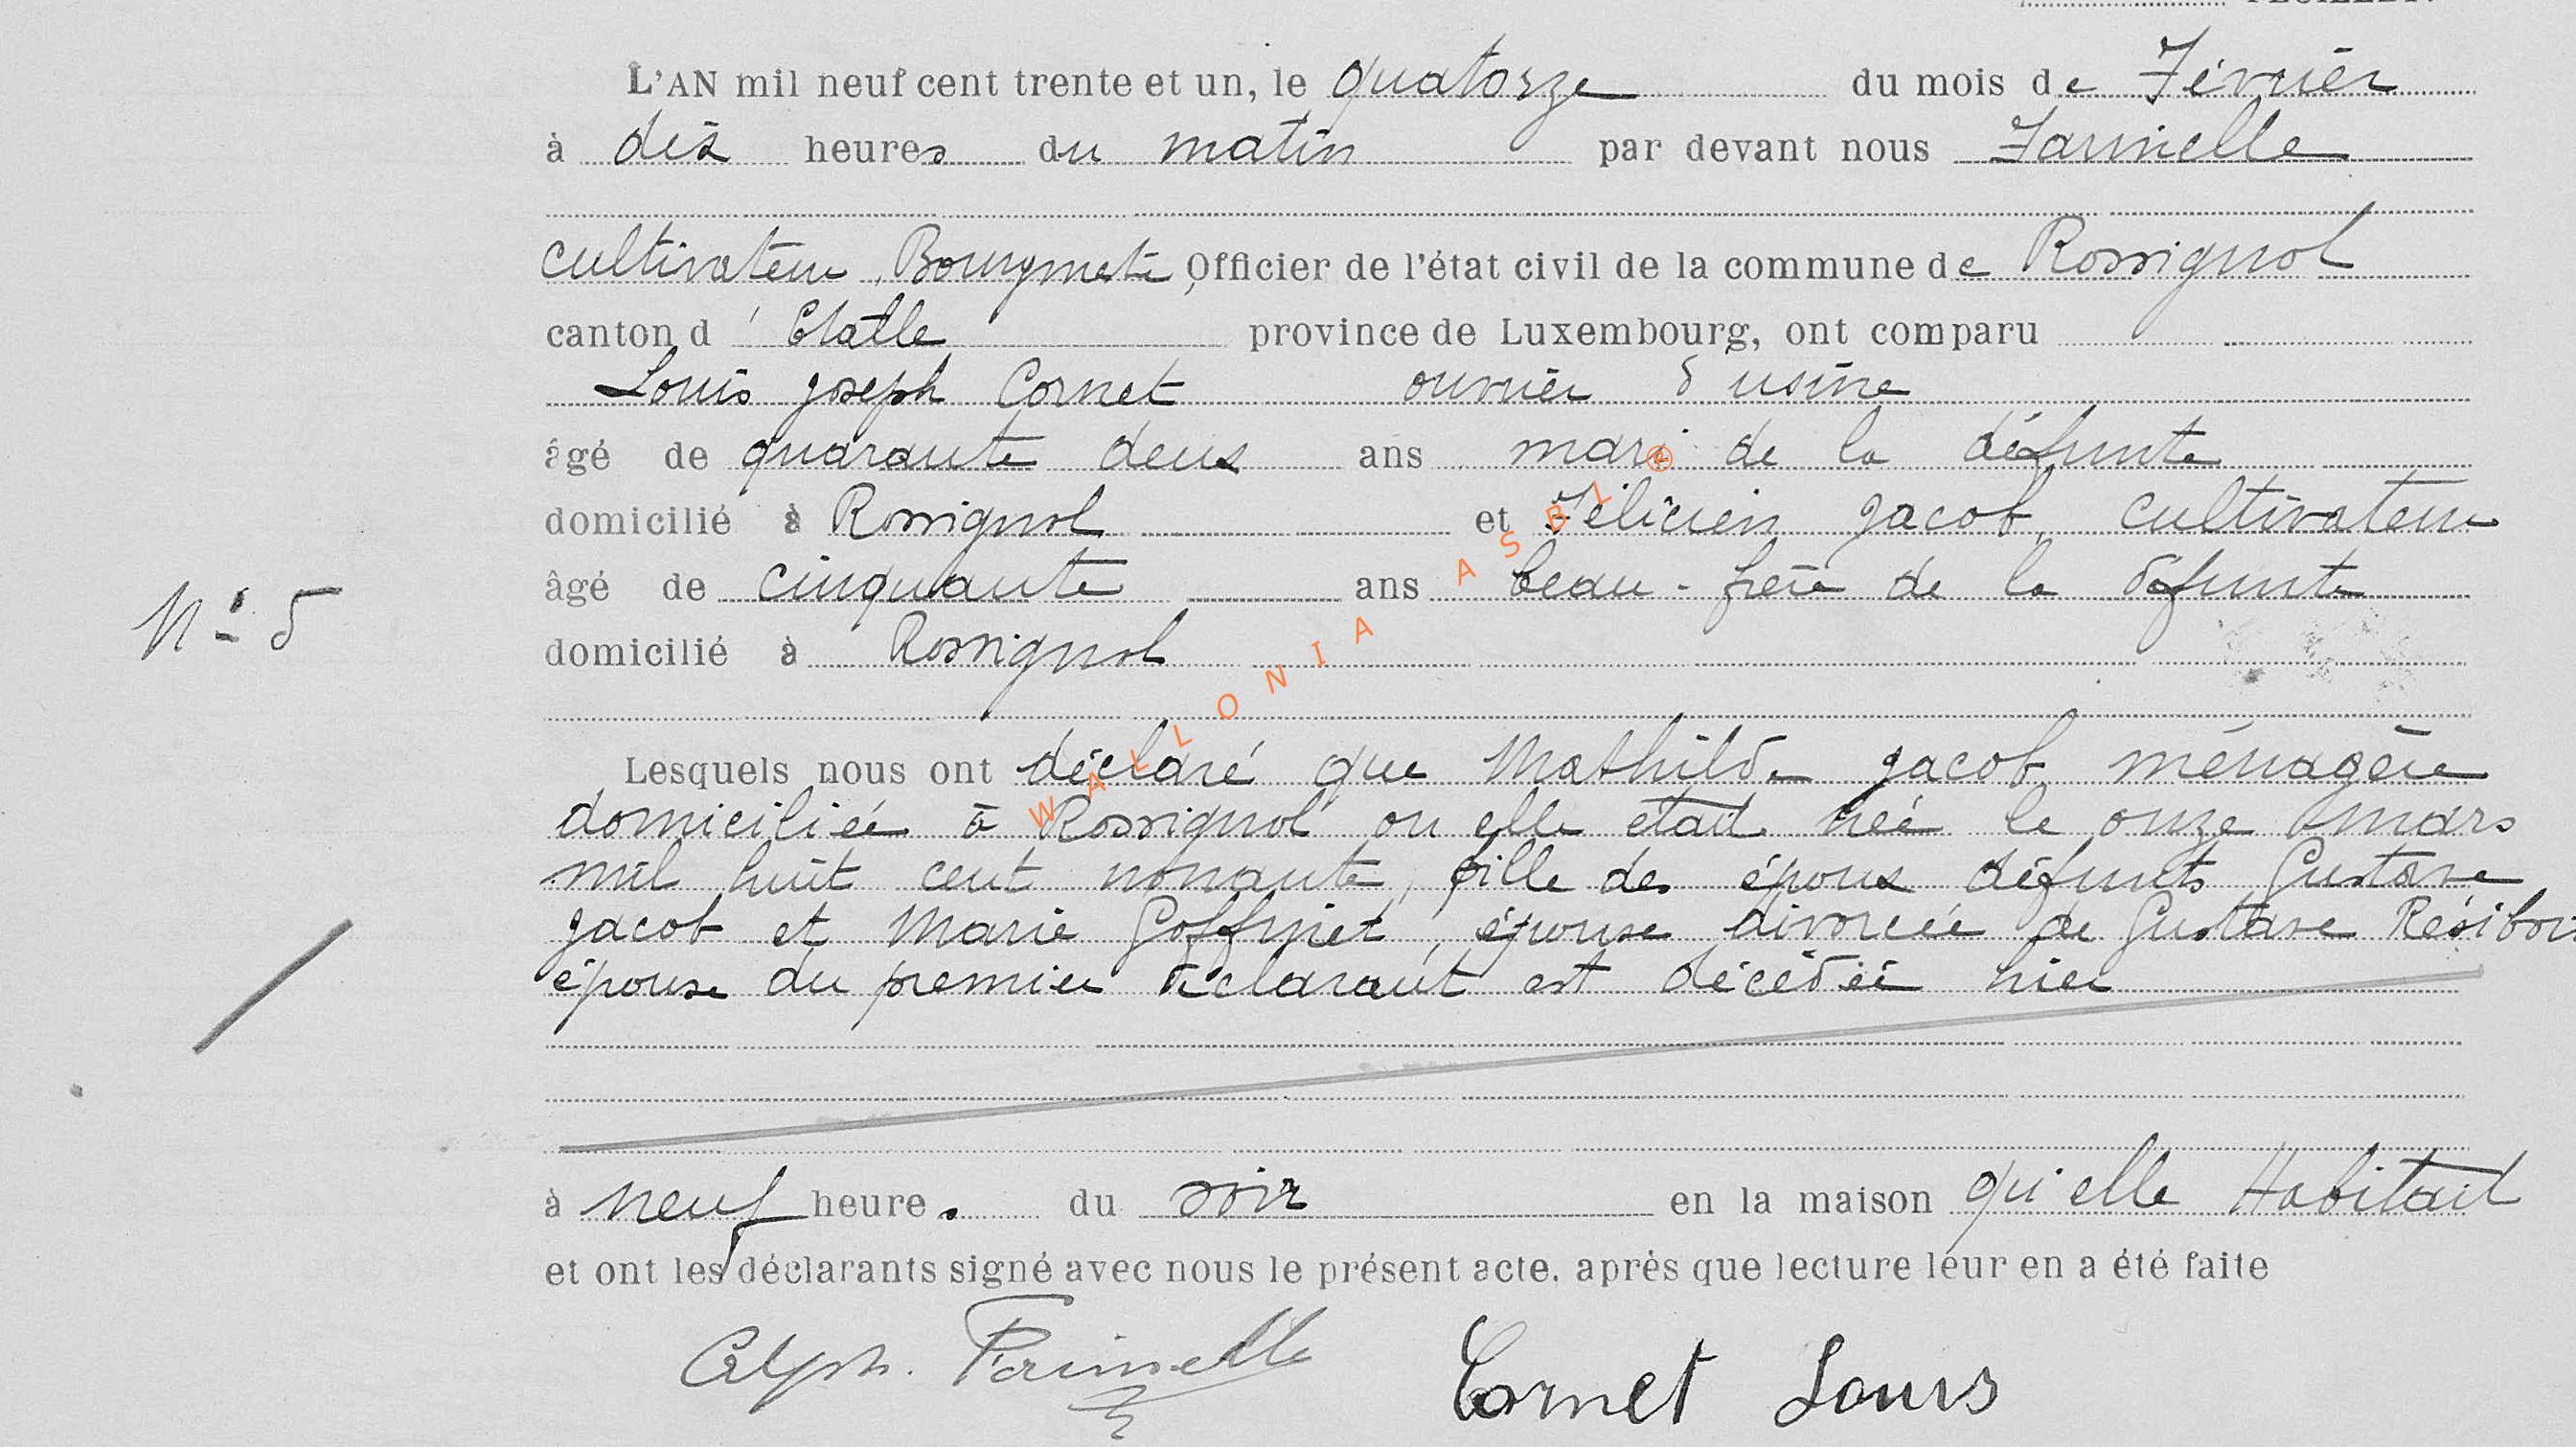 L'AN mil neuf cent trente et un, le quatorze du mois de Février
à dix heures du matin par devant nous Farinelle
cultivateur, Bourgmestre, Officier de l'état civil de la commune de Rossignol
canton d' Etalle province de Luxembourg, ont comparu
Louis Joseph Cornet ouvrier d'usine
âgé de quarante deux ans mari de la défunte
domicilié à Rossignol et Félicien Jacob, cultivateur
âgé de cinquante ans beau-frère de la défunte
N° 5
domicilié à Rossignol
Lesquels nous ont déclaré que Mathilde Jacob, ménagère
domiciliée à Rossignol où elle était née le onze mars
mil huit cent nonante, fille des époux défunts Gustave
Jacob et Marie Goffinet, épouse divorcée de Gustave
épouse du premier déclarant est décédée hier
à neuf heure. du soir en la maison qu'elle Habitait
et ont les déclarants signé avec nous le présent acte, après que lecture leur en a été faite
Alph. Farinelle Cornet Louis
WALLONIA ASBL ©